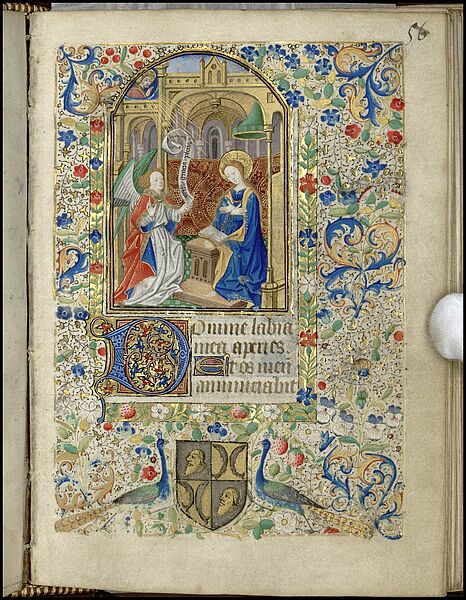 56
Domine labia
mea aperies.
Et os meu
annunciabit